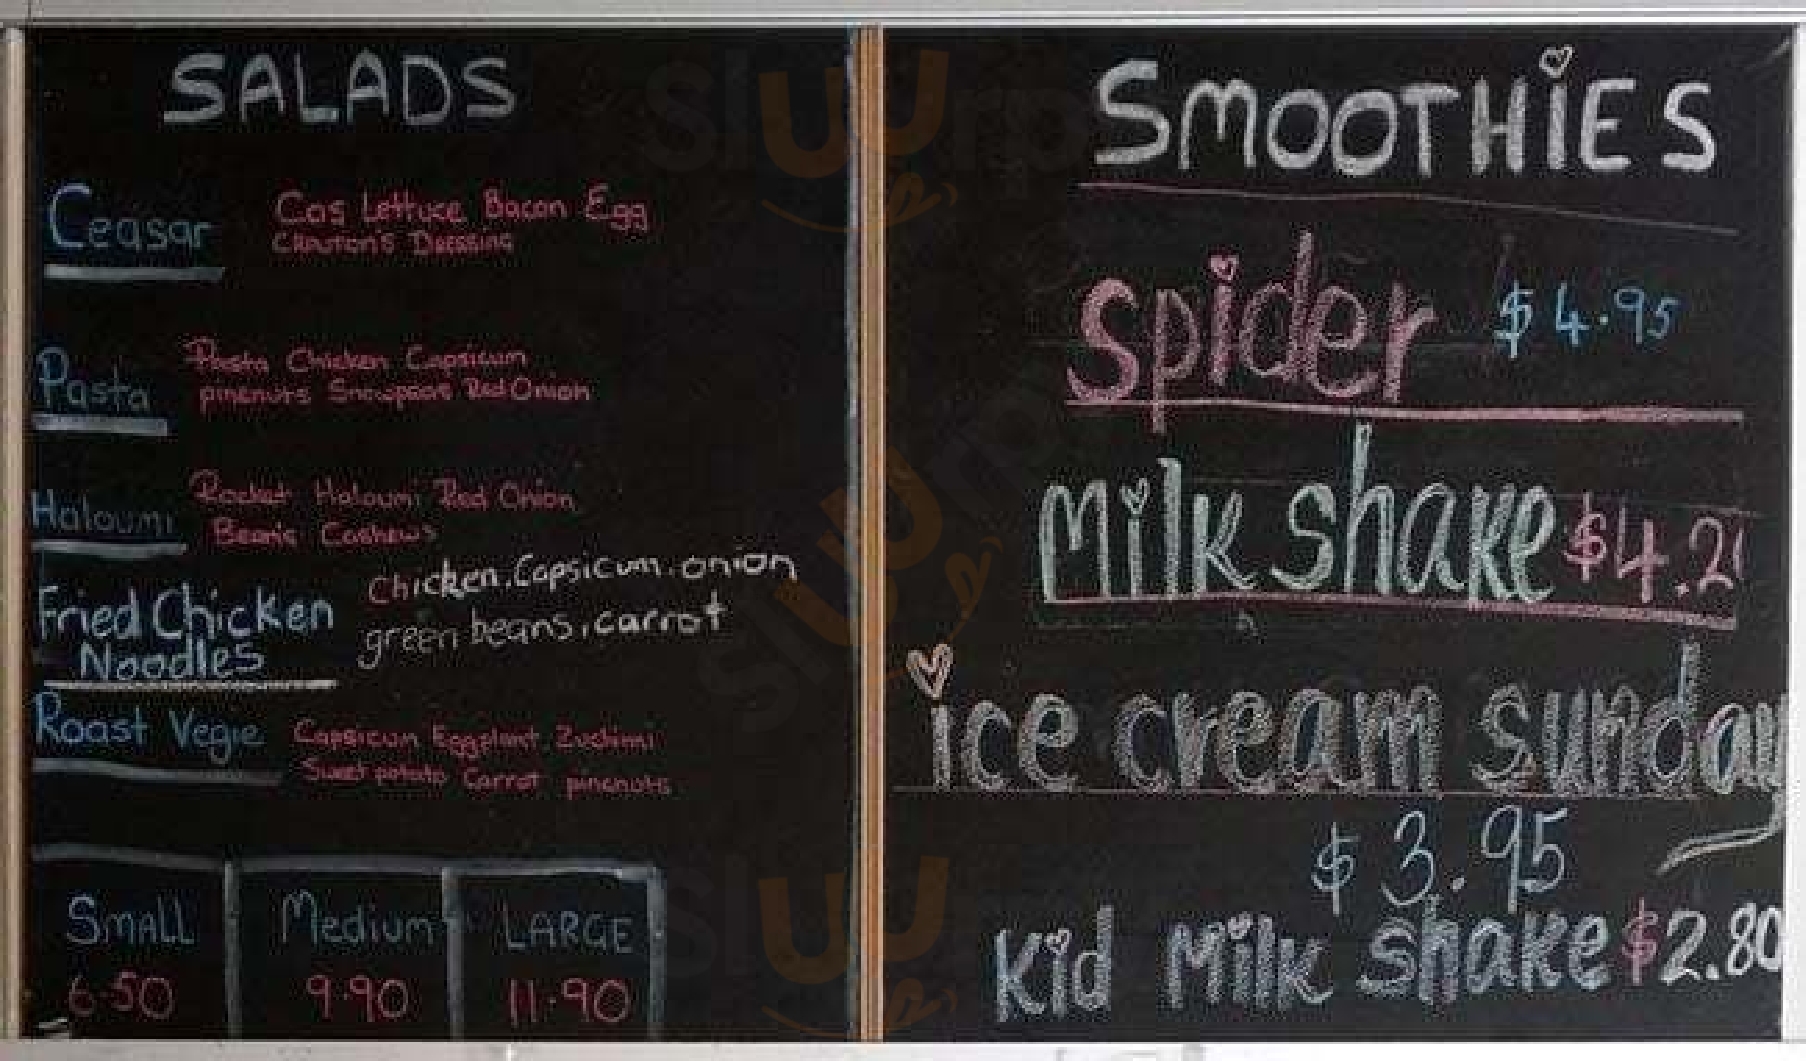 SALADS
Ceasar
Cos Lettuce Bacon Egg
Crouton's Dressing
Pasta
Pasta Chicken Capsicum
pinenuts Snowpeas Red Onion
Haloumi
Rocket Haloumi Red Onion
Beans Cashews
Fried Chicken
Noodles
Chicken.Capsicum.onion
green beans, carrot
Roast Vegie
Capsicum Eggplant Zuchini
Sweet potato Carrot pinenuts
SMALL Medium LARGE
6.50 9.90 11.90
SMOOTHiES
spider $4.95
milk shake $4.20
ice cream sunday
$3.95
Kid milk shake $2.80
sluurpy
sluurpy
sluurpy